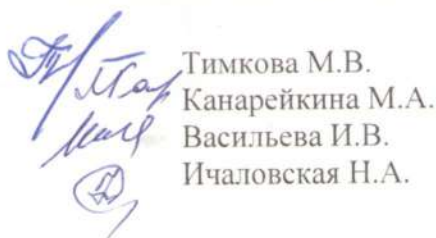 Тимкова М.В.
Канарейкина М.А.
Васильева И.В.
Ичаловская Н.А.